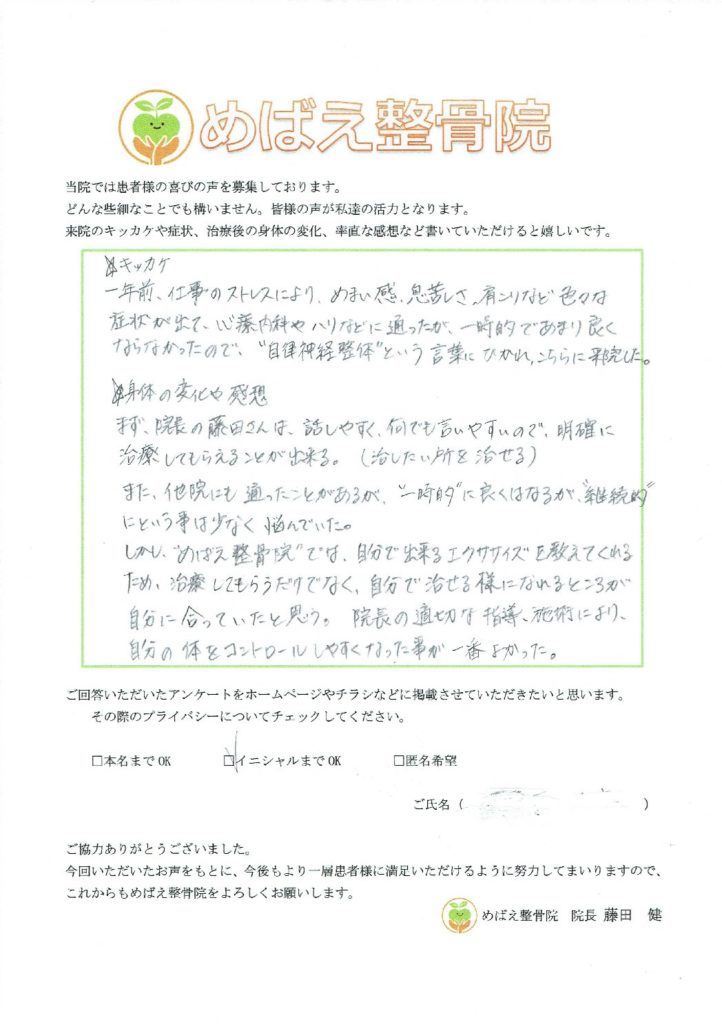 めばえ整骨院
当院では患者様の喜びの声を募集しております。
どんな些細なことでも構いません。皆様の声が私達の活力となります。
来院のキッカケや症状、治療後の身体の変化、率直な感想など書いていただけると嬉しいです。
☆キッカケ
一年前、仕事のストレスにより、めまい感、息苦しさ、肩こりなど色々な
症状が出て、心療内科やハリなどに通ったが、一時的であまり良く
ならなかったので、"自律神経整体"という言葉にひかれ、こちらに来院した。
☆身体の変化や感想
まず、院長の藤田さんは、話しやすく、何でも言いやすいので、明確に
治療してもらえることが出来る。(治したい所を治せる)
また、他院にも通ったことがあるが、"一時的"に良くはなるが、"継続的"
にという事は少なく悩んでいた。
しかし、"めばえ整骨院"では、自分で出来るエクササイズを教えてくれる
ため、治療してもらうだけでなく、自分で治せる様になれるところが
自分に合っていたと思う。 院長の適切な指導、施術により、
自分の体をコントロールしやすくなった事が一番よかった。
ご回答いただいたアンケートをホームページやチラシなどに掲載させていただきたいと思います。
その際のプライバシーについてチェックしてください。
□本名までOK ☑イニシャルまでOK □匿名希望
ご氏名( )
ご協力ありがとうございました。
今回いただいたお声をもとに、今後もより一層患者様に満足いただけるように努力してまいりますので、
これからもめばえ整骨院をよろしくお願いします。
めばえ整骨院 院長 藤田 健